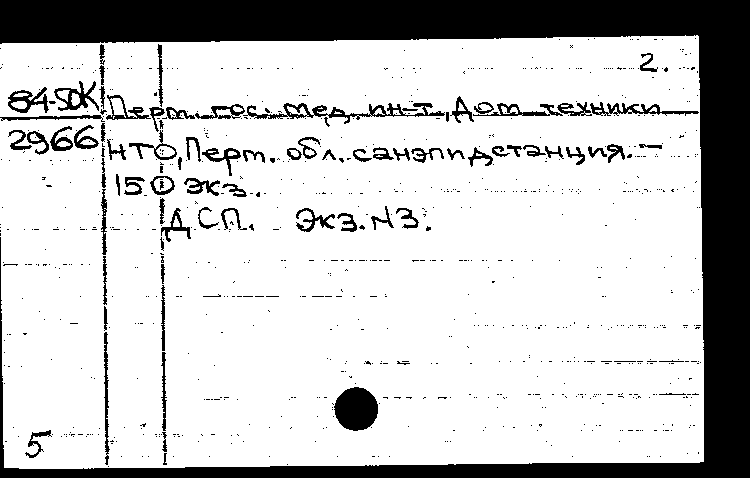 2.
84-5DK Перм. гос. мед. ин-т, Дом техники
2966 НТО, Перм. обл. санэпидстанция. –
150 экз.
ДСП. Экз. N3.
5